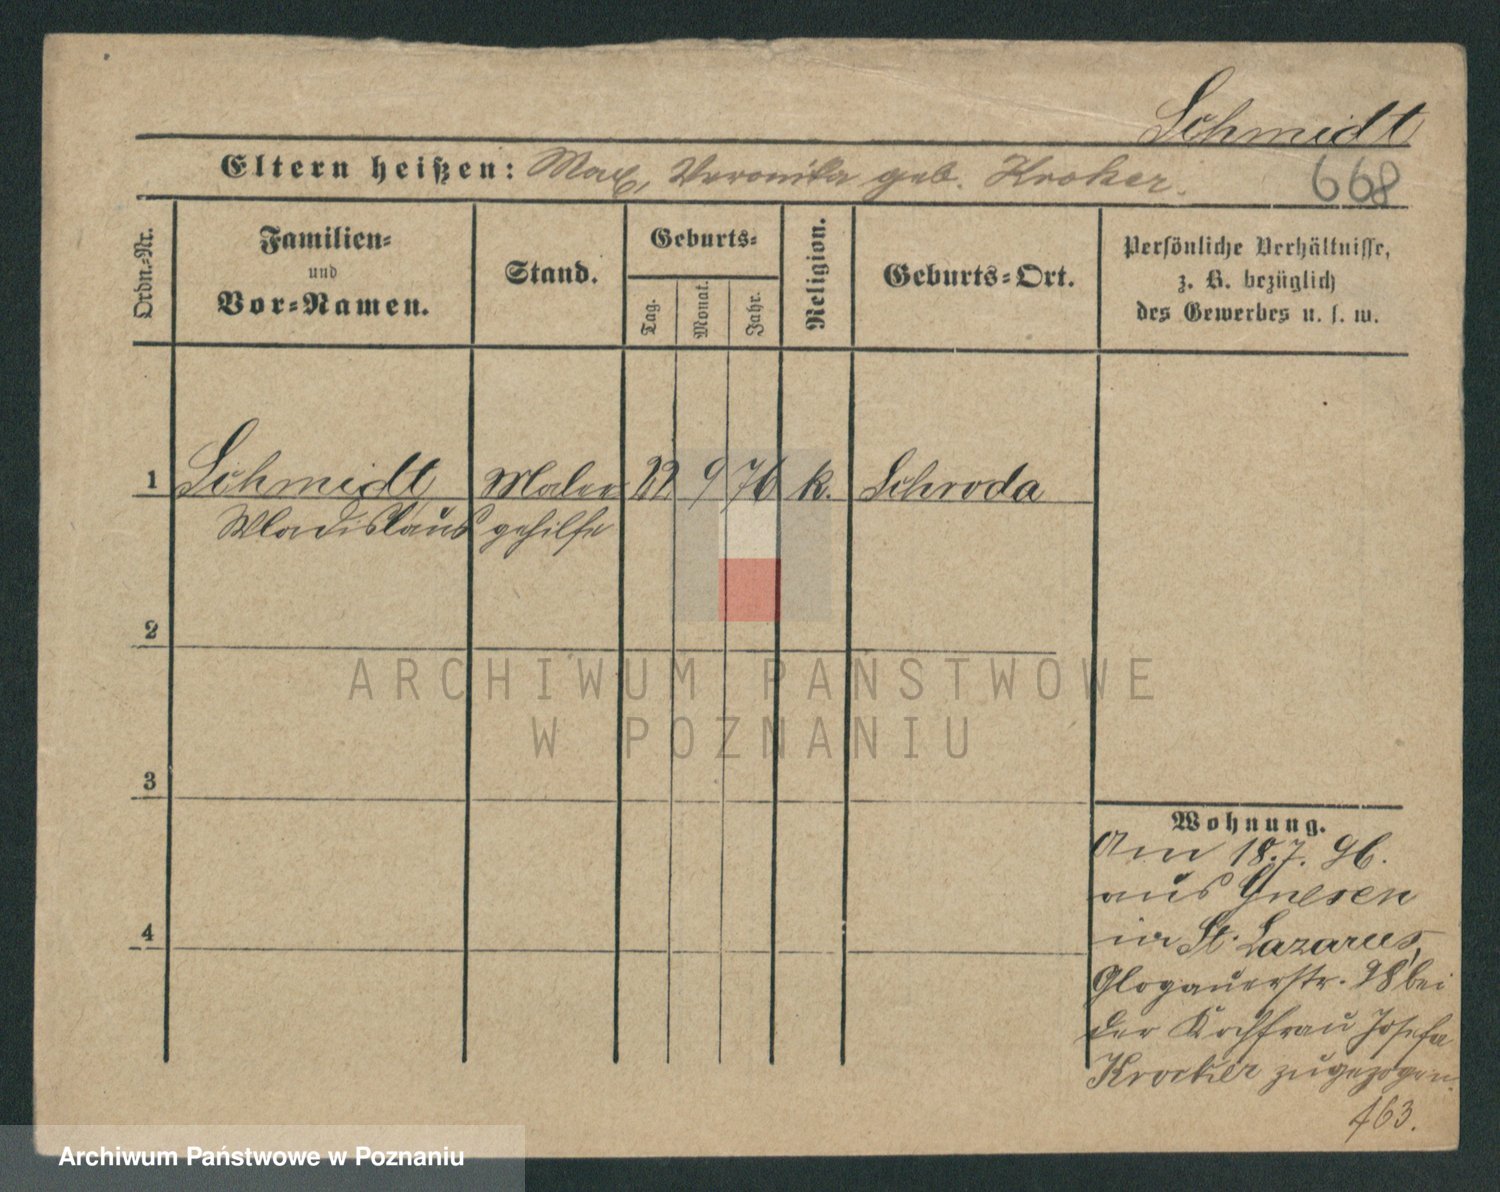 Schmidt
Eltern heißen: Max, Veronika geb. Kroker.
668
Ordn.-Nr.
Familien-
und
Vor-Namen.
Stand.
Geburts-
Tag.
Monat.
Jahr.
Religion.
Geburts-Ort.
Persönliche Verhältnisse,
z. B. bezüglich
des Gewerbes u. s. w.
1 Schmidt Maler 22 9 76 k. Schroda
Wladislaus gehilfe
2
ARCHIWUM PAŃSTWOWE
W POZNANIU
3
Wohnung.
Am 18.7. 96.
aus Gnesen
in St. Lazarus,
Glogauerstr. 98 bei
der Kochfrau Josefa
Krocker zugezogen.
4
463.
Archiwum Państwowe w Poznaniu